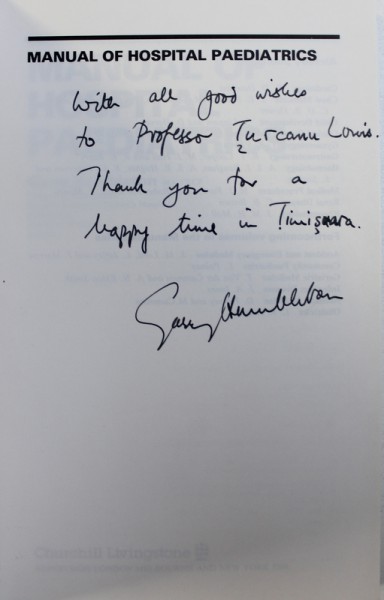 MANUAL OF HOSPITAL PAEDIATRICS
With all good wishes
to Professor Ţurcanu Louis.
Thank you for a
happy time in Timişoara.
Gary Hambleton
Churchill Livingstone